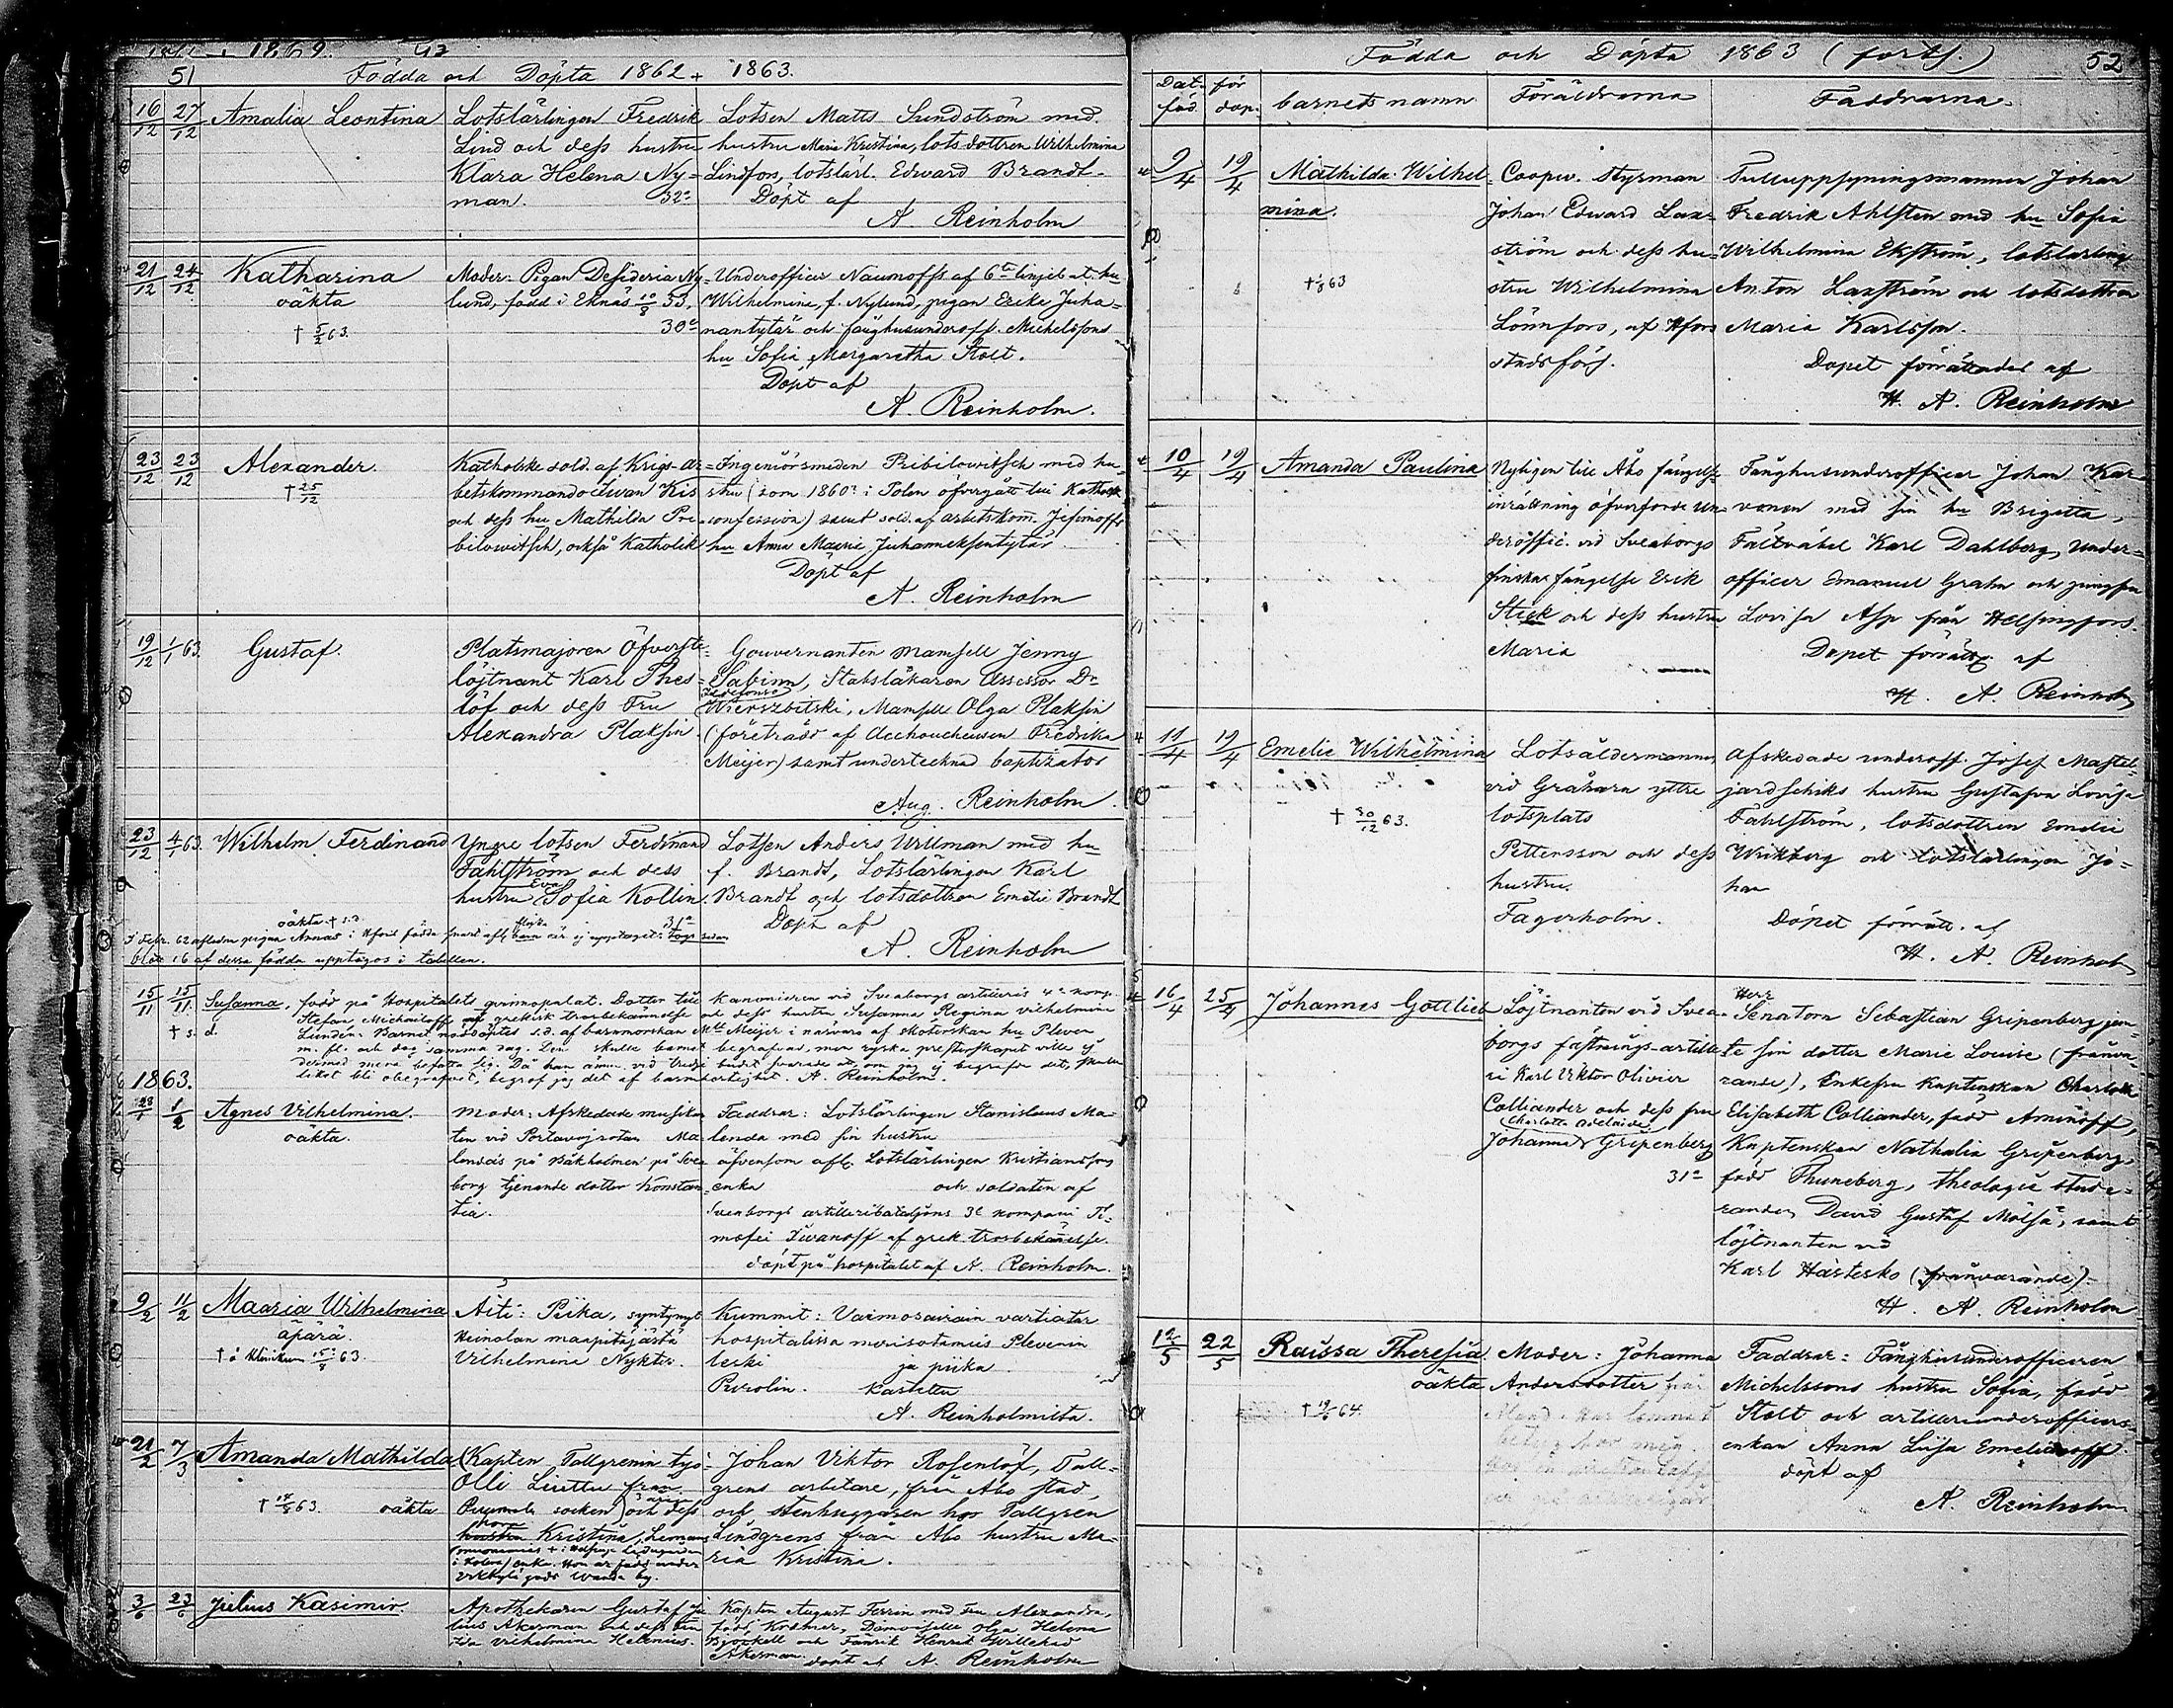 1869.
51 Födda och Döpta 1862 + 1863.
16/12 27/12 Amalia Leontina
Lotslärlingen Fredrik
Lind och dess hustru
Klara Helena Ny-
man. 32a
Lotsen Matts Sundström med
hustru Maria Kristina, lotsdottren Wilhelmina
Lindfors, lotslärl. Edward Brandt.
Döpt af
A. Reinholm
21/12 24/12 Katharina
oäkta
† 5/2 63.
Moder: Pigan Desideria Ny-
lund, född i Eknäs 10/8 33.
30a
Underofficer Naumoffs af 6te linjebat. hu
Wilhelmina, f. Nylund, pigan Juha-
nantytär och fånghusunderoff. Michelssons
hu Sofia Margaretha Stolt.
Döpt af
A. Reinholm.
23/12 23/12 Alexander.
† 25/12
Katholske sold. af Krigs-ar-
betskommando Iwan Kis
och dess hu Mathilda Pri-
bilowitsch, också Katholik
Ingeniörsmeden Pribilowitsch med hu-
stru (som 1860 i Polen öfvergått till Kathol.
confession) samt sold. af arbetskom. Jefimoffs
hu Anna Maria Juhanneksentytär
Döpt af
A. Reinholm
19/12 1/1 63. Gustaf.
Platsmajoren Öfverste-
löjtnant Karl Thes-
löf och dess Fru
Alexandra Plaksin.
Gouvernanten mamsell Jenny
Sabinn, Stabsläkaren Assessor Dr
Ildefonso
Wierszbitski, Mamsell Olga Plaksin
(företrädd af Acchoucheusen Fredrika
Meijer) samt undertecknad baptizator
Aug. Reinholm.
23/12 4/1 63. Wilhelm Ferdinand
Yngre lotsen Ferdinand
Fahlström och dess
Eva
hustru Sofia Kollin.
31a
Lotsen Anders Willman med hu
f. Brandt, Lotslärlingen Karl
Brandt och lotsdottren Emelie Brandt
Döpt af
A. Reinholm
oäkta † s.d.
I Febr. 62 aflidne pigan Annas i Hfors födda är ej upptaget
blott 16 af dessa födda upptagos i tabellen.
15/11 15/11 Susanna, född på Hospitalets grimopalat. Dotter till Kanonieren vid Sveaborgs artilleris 4e komp.
† s. d. Stefan Michailoff af grekisk trosbekännelse och dess hustru Susanna Regina Wilhelmina
Lundén. Barnet nöddöptes s.d. af barnmorskan Mll Meijer i närvaro af sköterskan hu Pleven
m. fl. och dog samma dag. skulle barnet begrafvas, men ryska presterskapet ville ej
dermed mera befatta sig. Då han ännu vid tredje budet svarade att om jag ej begrafver det, skulle
liket bli obegrafvet, begrof jag det af barmhertighet. A. Reinholm.
1863.
23/1 1/2 Agnes Vilhelmina.
oäkta.
Moder: Afskedade musikan
ten vid Portavojrotan Ma-
lendas på Bakholmen på Svea-
borg tjenande dotter Konstan-
tia.
Faddrar: Lotslärlingen Stanislaus Ma-
lenda med sin hustru
äfvensom afl. Lotslärlingen Kristiansons
enka och soldaten af
Sveaborgs artilleribataljons 3e kompani Ti-
mofei Iwanoff af grek. trosbekännelse.
döpt på hospitalet af A. Reinholm.
9/2 11/2 Maaria Wilhelmina
äpärä.
† å Klinikum 15/5 63.
Äiti: Piika, syntynyt
Heinolan maapitäjästä
Vilhelmina Nykter.
Kummit: Vaimosairain vartiatar
hospitalissa Plevenin
leski ja piika
Purolin. Kastettu
A. Reinholmilta.
21/2 7/3 Amanda Mathilda
† 17/5 63. oäkta
(Kapten Tallgrenin työ-
Olli Lirettu från
socken) och dess
hustru Kristina,
i enka. Hon är född under
gods Wanda by.
Johan Viktor Rosenlöf, Tall-
grens arbetare, från Åbo stad,
och stenhuggaren hos Tallgren
Lindgrens från Åbo hustru Ma-
ria Kristina.
3/6 23/6 Julius Kasimir.
Apothekaren Gustaf Ju-
lius Åkerman och dess
Vilhelmina Helenius.
Kapten August Ferrin med Fru Alexandra,
född Krämer, Damoiselle Olga Helena
Björkell och Fänrik Henrik Willehad
Åkerman. döpt af A. Reinholm
Födda och Döpta 1863 (forts.) 52
Dat. för
föd. dop. barnets namn Föräldrarna Faddrarna.
9/4 19/4 Mathilda Wilhel-
mina.
† 1/8 63
Coopv. styrman
Johan Edward Lax-
ström och dess hu-
stru Wilhelmina
Lönnfors, af Hfors
stadsförs.
Tulluppsyningsmannen Johan
Fredrik Ahlsten med hu Sofia
Wilhelmina Ekström, lotslärling
Anton Laxström och lotsdottren
Maria Karlsson.
Dopet förrättadet af
H. A. Reinholm
10/4 19/4 Amanda Paulina
Nyligen till Åbo fängelse-
inrättning öfverförde Un-
deroffic. vid Sveaborgs
finska fängelse Erik
Stick och dess hustru
Maria
Fånghusunderofficer Johan Kar-
vonen med sin hu Brigitta,
Fältväbel Karl Dahlberg, Under-
officer Emanuel Grahn och jungfru
Lovisa Asp från Helsingfors.
Dopet förrättg af
H. A. Reinholm
11/4 19/4 Emelie Wilhelmina
† 30/12 63.
Lotsåldermannen
vid Gråhara yttre
lotsplats
Pettersson och dess
hustru
Fagerholm.
Afskedade underoff. Josef Mastel-
jardschiks hustru Gustafva Lovisa
Fahlström, lotsdottren Emelie
Wrikberg och lotslärlingen Jo-
han
Döpet förrätt. af
H. A. Reinholm
16/4 25/4 Johannes Gottlieb
Löjtnanten vid Svea-
borgs fästnings-artille-
ri Karl Viktor Olivier
Calliander och dess fru
Charlotta Adelaide
Johanna Gripenberg
31a
Herr
Senatorn Sebastian Gripenberg jem-
te sin dotter Marie Louise (frånva-
rande), Enkefru Kaptenskan Charlotte
Elisabeth Calliander, född Aminoff,
Kaptenskan Nathalia Gripenberg,
född Thuneberg, theologie stude-
randen David Gustaf Molsa, samt
löjtnanten vid
Karl Hästesko (frånvarande).
H. A. Reinholm
12/5 22/5 Raissa Theresia.
oäkta
† 19/6 64.
Moder: Johanna
Andersdotter från
Faddrar: Fånghusunderofficeren
Michelssons hustru Sofia, född
Stolt och artilleriunderofficers-
enkan Anna Lisa Emelianoff
döpt af
A. Reinholm